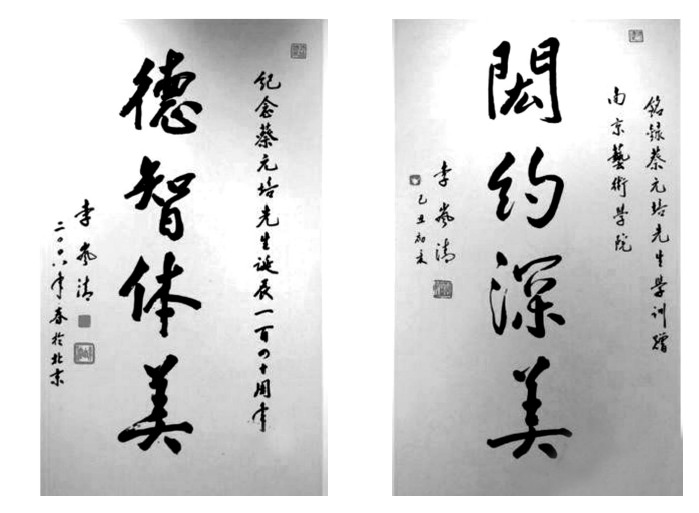 纪念蔡元培先生诞辰一百四十周年
德智体美
李岚清
二〇〇八年春於北京
铭録蔡元培先生學训赠
南京藝術學院
閎约深美
李岚清
己丑初夏